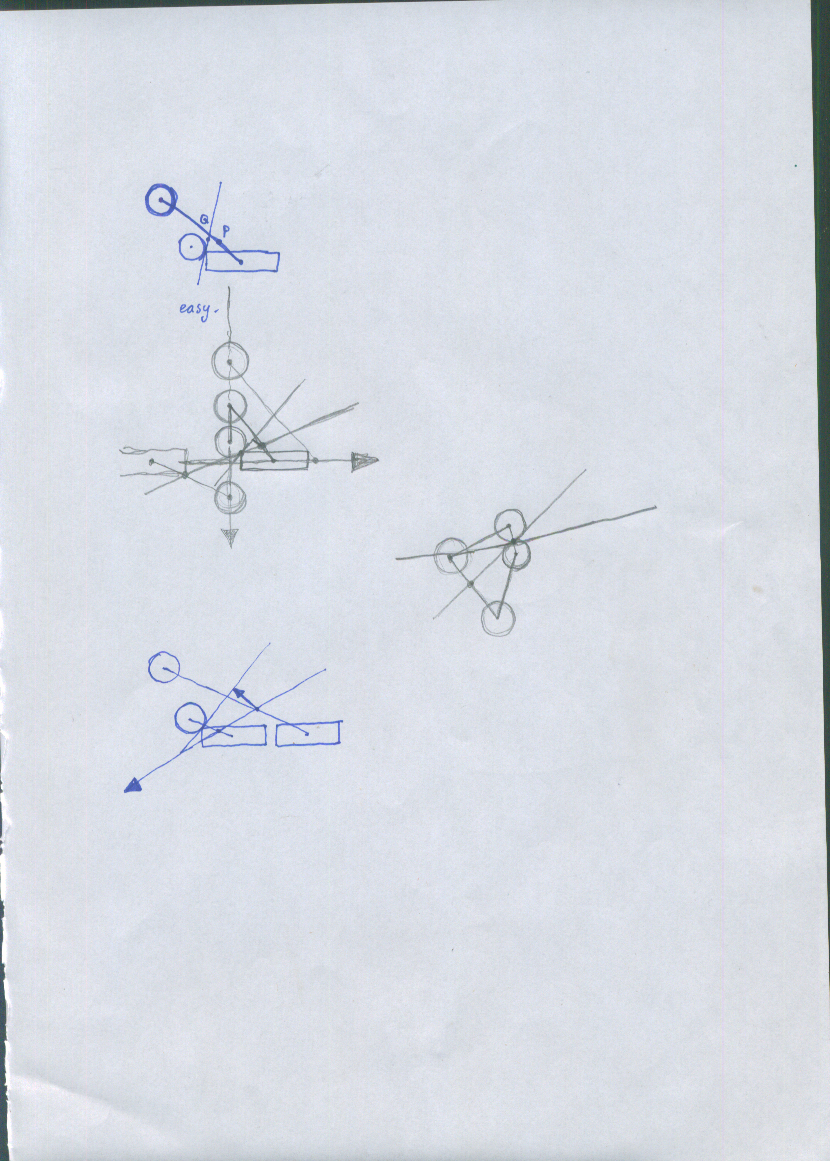 Q
P
easy.